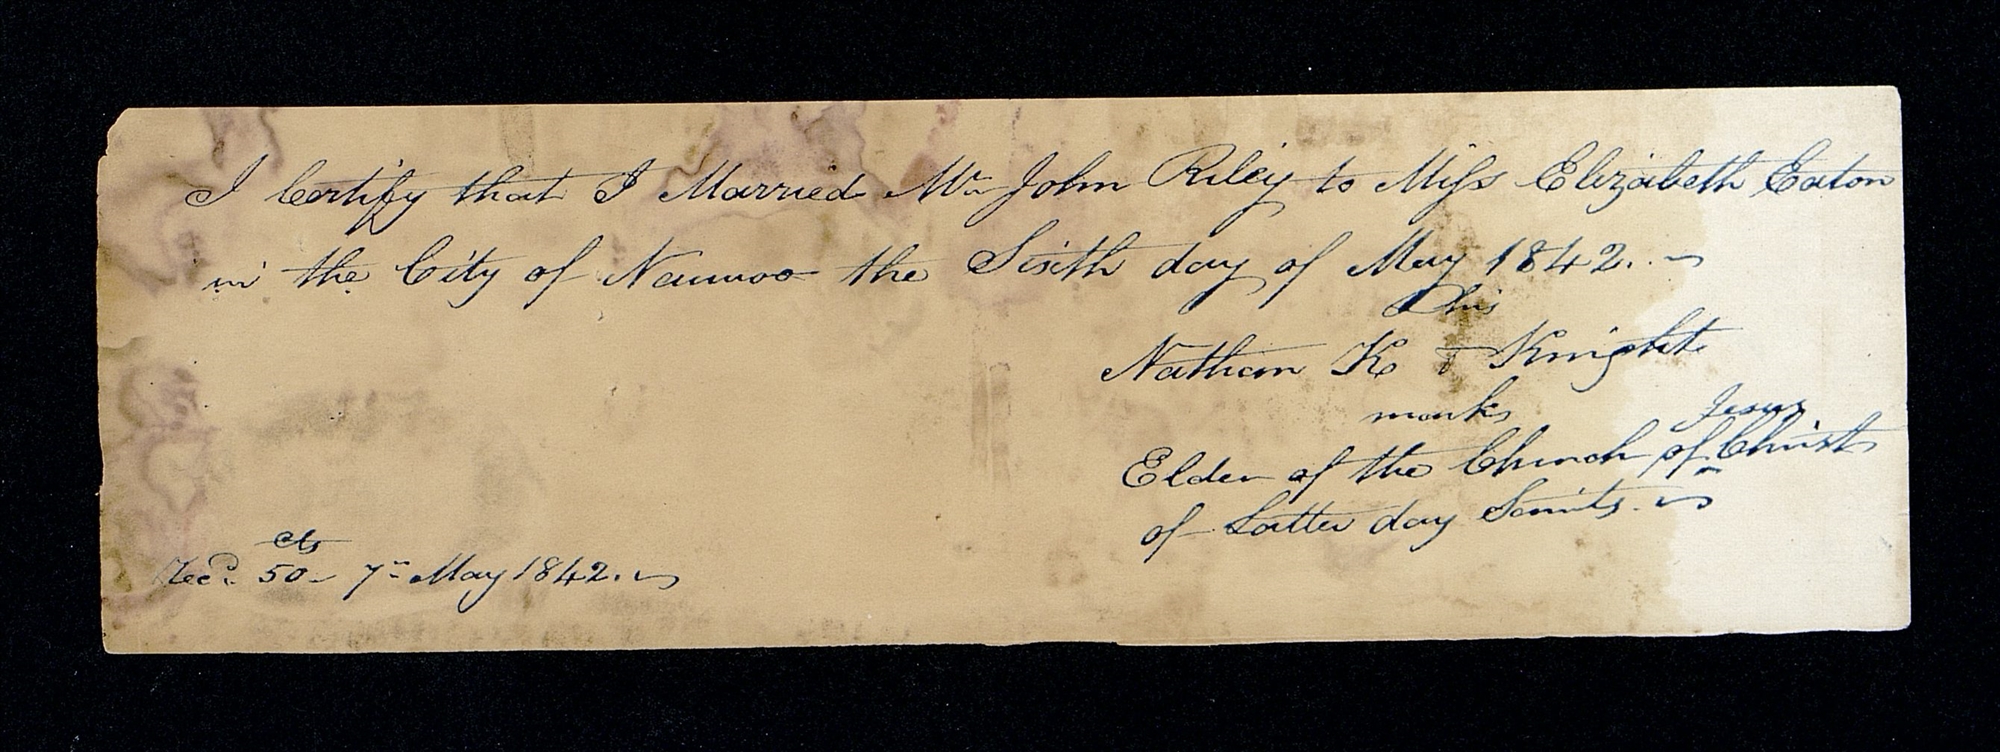 I Certify that I Married Mr John Riley to Miss Elizabeth Eaton
in the City of Nauvoo the Sixth day of May 1842.
his
Nathan K + Knight
mark
Jesus
Elder of the Church of ^ Christ
of Latter day Saints.
cts
Recd. 50 7th May 1842.